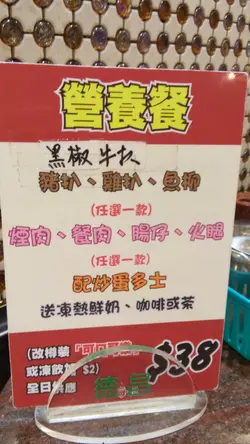 營養餐
黑椒牛扒
豬扒、雞扒、魚柳
(任選一款)
煙肉、餐肉、腸仔、火腿
(任選一款)
配炒蛋多士
送凍熱鮮奶、咖啡或茶
(改樽裝
或凍飲加 $2)
全日供應
$38
德昌